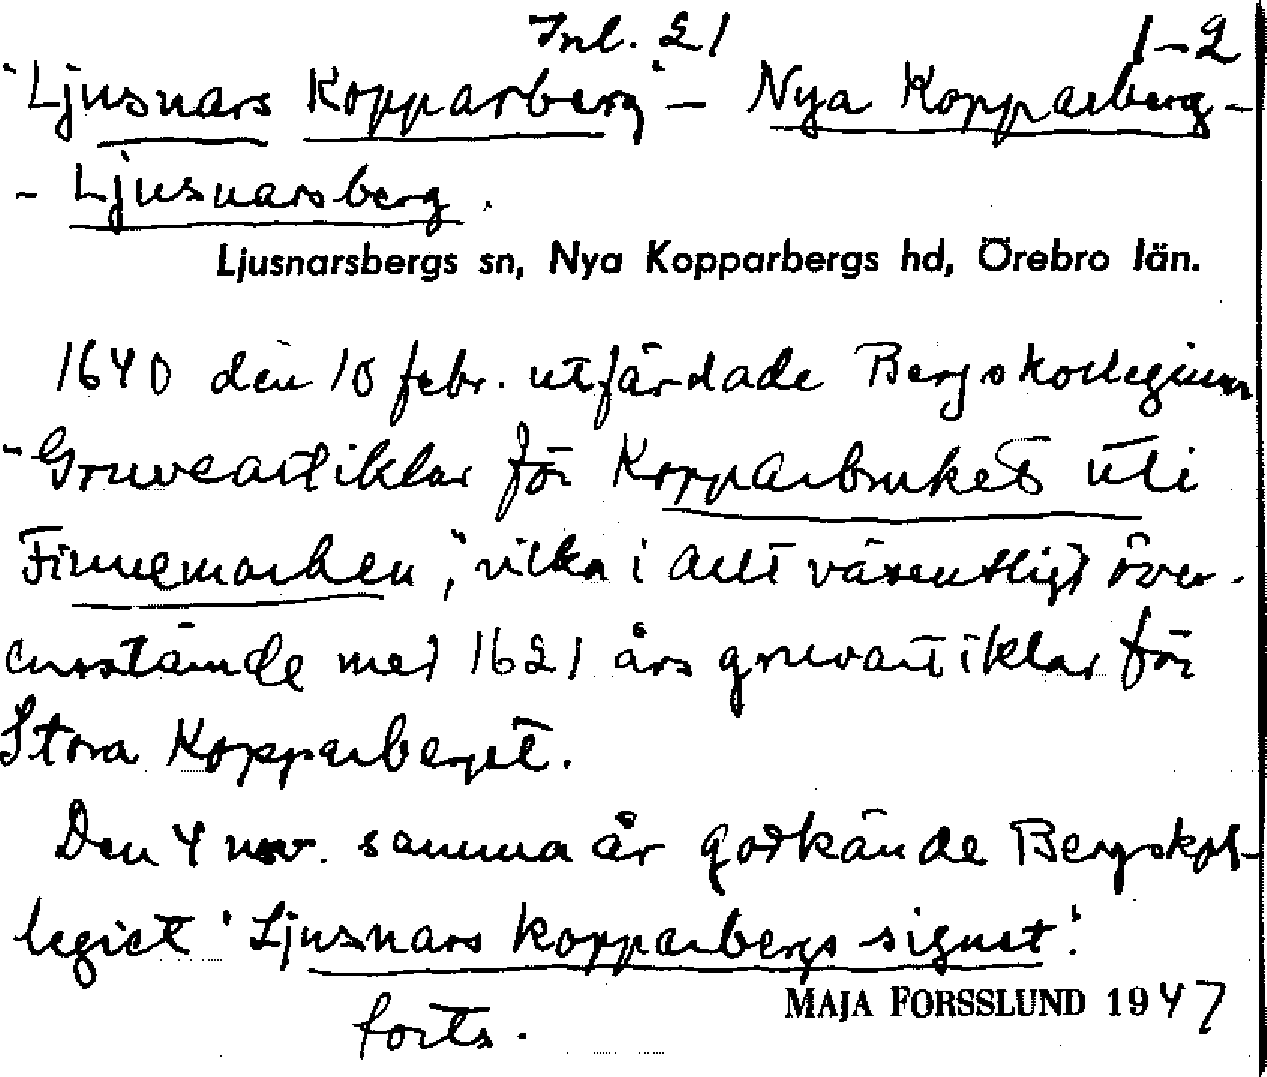 Inl. 21 1-2
"Ljusnars Kopparberg" - Nya Kopparberg -
- Ljusnarsberg.
Ljusnarsbergs sn, Nya Kopparbergs hd, Örebro län.
1640 den 10 febr. utfärdade Bergskollegium
"Gruveartiklar för Kopparbruket uti
Finnemarken", vilka i allt väsentligt över-
ensstämde med 1621 års gruvartiklar för
Stora Kopparberget.
Den 4 nov. samma år godkände Bergskol-
legiet "Ljusnars kopparbergs signet".
forts.
MAJA FORSSLUND 1947